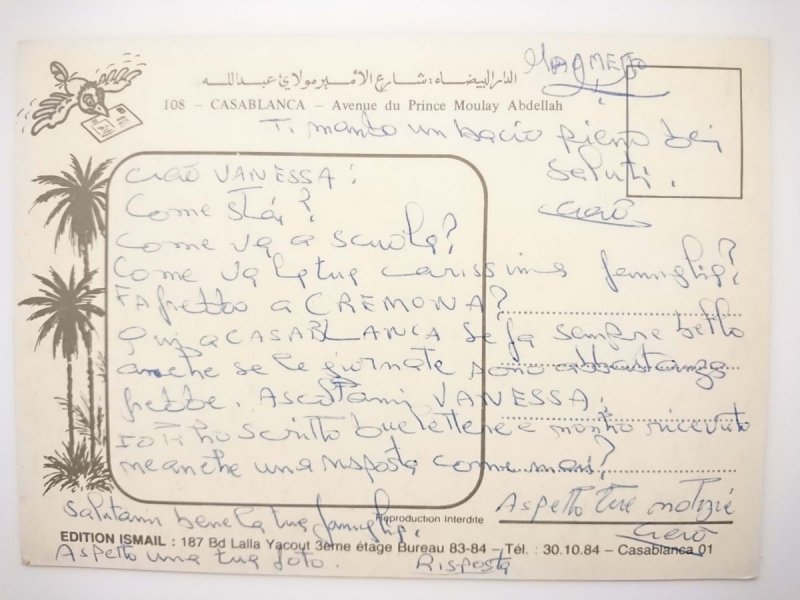 الدار البيضاء : شارع الأمير مولاي عبد الله
108 – CASABLANCA – Avenue du Prince Moulay Abdellah
Ti mando un bacio pieno dei
saluti.
ciaō
ciaō VANESSA!
Come stai?
Come va a scuola?
Come va la tua carissima famiglia?
Fa freddo a CREMONA?
Qui a CASABLANCA se fa sempre bello
anche se le giornate sono abbastanza
fredde. Ascoltami VANESSA!
ho scritto due lettere e non ho ricevuto
neanche una risposta come mai?
Aspetto tue notizie
ciaō
salutami bene la tua famiglia.
Reproduction Interdite
EDITION ISMAIL : 187 Bd Lalla Yacout 3ème étage Bureau 83-84 – Tél. : 30.10.84 – Casablanca 01
Aspetto una tua foto. Risposta